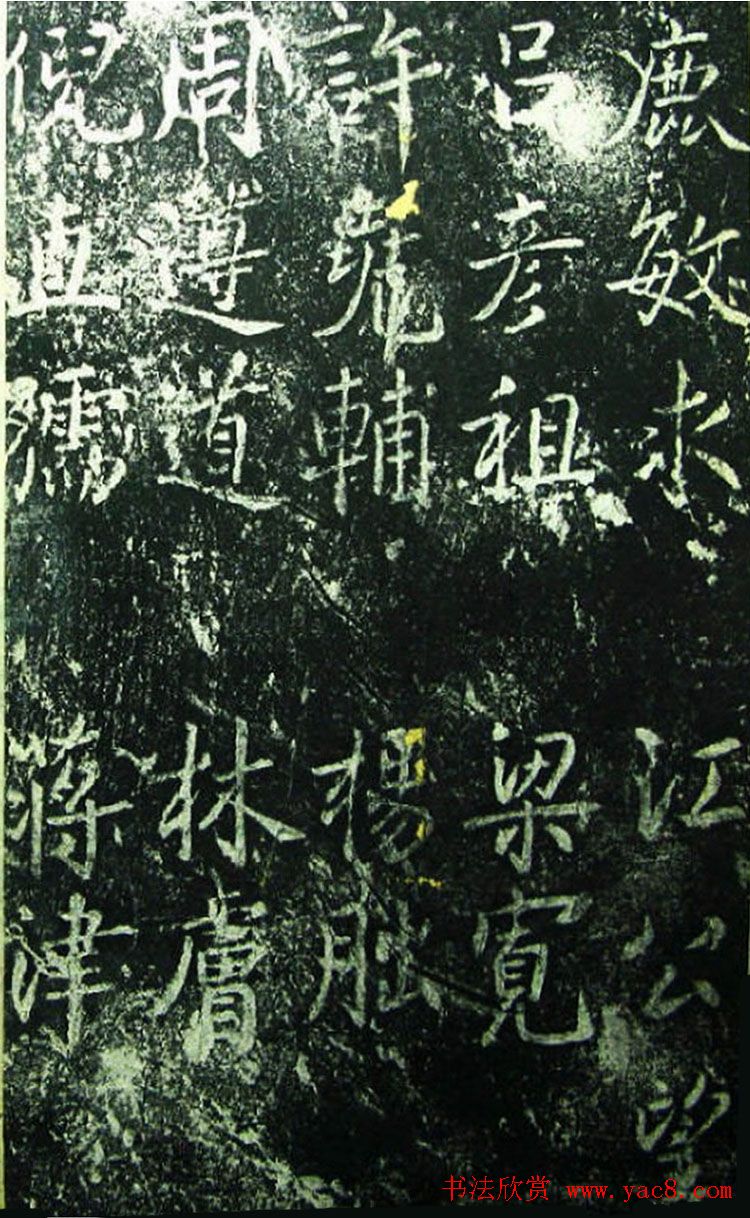 鹿敏求 江公望
呂彦祖 梁寬
許堯輔 楊朏
周遵道 林膚
倪直孺 蔣津
书法欣赏 www.yac8.com